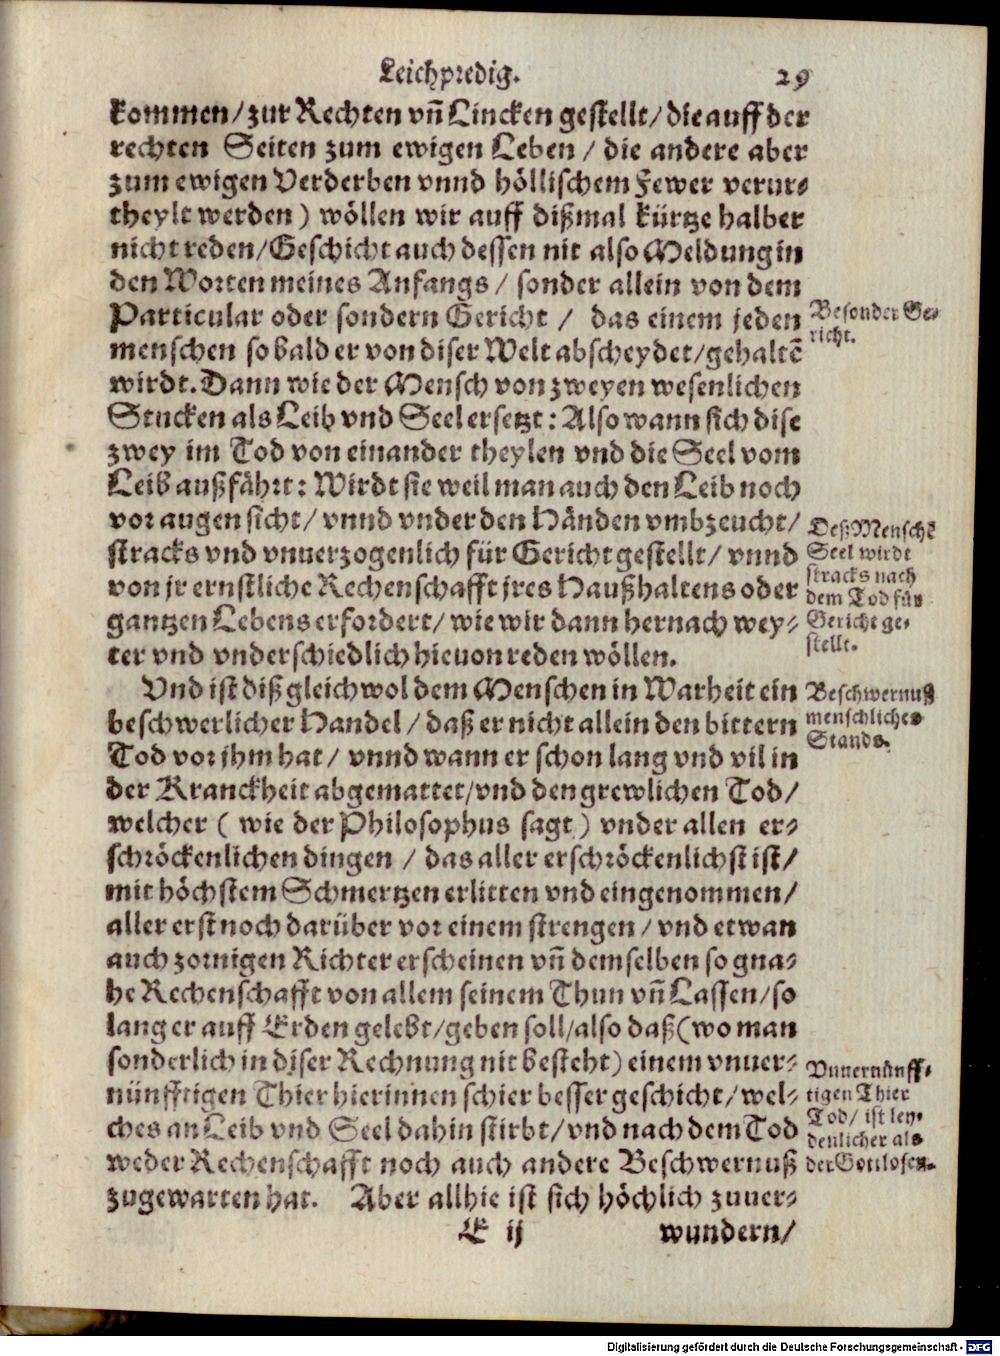 Leichpredig. 29
kommen/zur Rechten vñ Lincken gestellt/die auff der
rechten Seiten zum ewigen Leben / die andere aber
zum ewigen Verderben vnnd höllischem Fewer verur-
theylt werden) wöllen wir auff dißmal kürtze halber
nicht reden/Geschicht auch dessen nit also Meldung in
den Worten meines Anfangs / sonder allein von dem
Particular oder sondern Gericht / das einem jeden
menschen so bald er von diser Welt abscheydet/gehaltẽ
wirdt. Dann wie der Mensch von zweyen wesenlichen
Stucken als Leib vnd Seel ersetzt: Also wann sich dise
zwey im Tod von einander theylen vnd die Seel vom
Leib außfährt: Wirdt sie weil man auch den Leib noch
vor augen sicht/ vnnd vnder den Händen vmbzeucht/
stracks vnd vnuerzogenlich für Gericht gestellt/ vnnd
von jr ernstliche Rechenschafft jres Haußhaltens oder
gantzen Lebens erfordert/ wie wir dann hernach wey-
ter vnd vnderschiedlich hieuon reden wöllen.
Vnd ist diß gleichwol dem Menschen in Warheit ein
beschwerlicher Handel / daß er nicht allein den bittern
Tod vor jhm hat / vnnd wann er schon lang vnd vil in
der Kranckheit abgemattet/vnd den grewlichen Tod/
welcher ( wie der Philosophus sagt ) vnder allen er-
schröckenlichen dingen / das aller erschröckenlichst ist/
mit höchstem Schmertzen erlitten vnd eingenommen/
aller erst noch darüber vor einem strengen / vnd etwan
auch zornigen Richter erscheinen vñ demselben so gna-
he Rechenschafft von allem seinem Thun vñ Lassen/so
lang er auff Erden gelebt/geben soll/also daß (wo man
sonderlich in diser Rechnung nit besteht) einem vnuer-
nünfftigen Thier hierinnen schier besser geschicht/wel-
ches an Leib vnd Seel dahin stirbt/vnd nach dem Tod
weder Rechenschafft noch auch andere Beschwernuß
zugewarten hat. Aber allhie ist sich höchlich zuuer-
E ij wundern/
Besonder Ge-
richt.
Deß Menschẽ
Seel wirdt
stracks nach
dem Tod für
Gericht ge-
stellt.
Beschwernuß
menschliches
Stands.
Vnuernünff-
tigen Thier
Tod/ ist ley-
denlicher als
der Gottlosen.
Digitalisierung gefördert durch die Deutsche Forschungsgemeinschaft - DFG